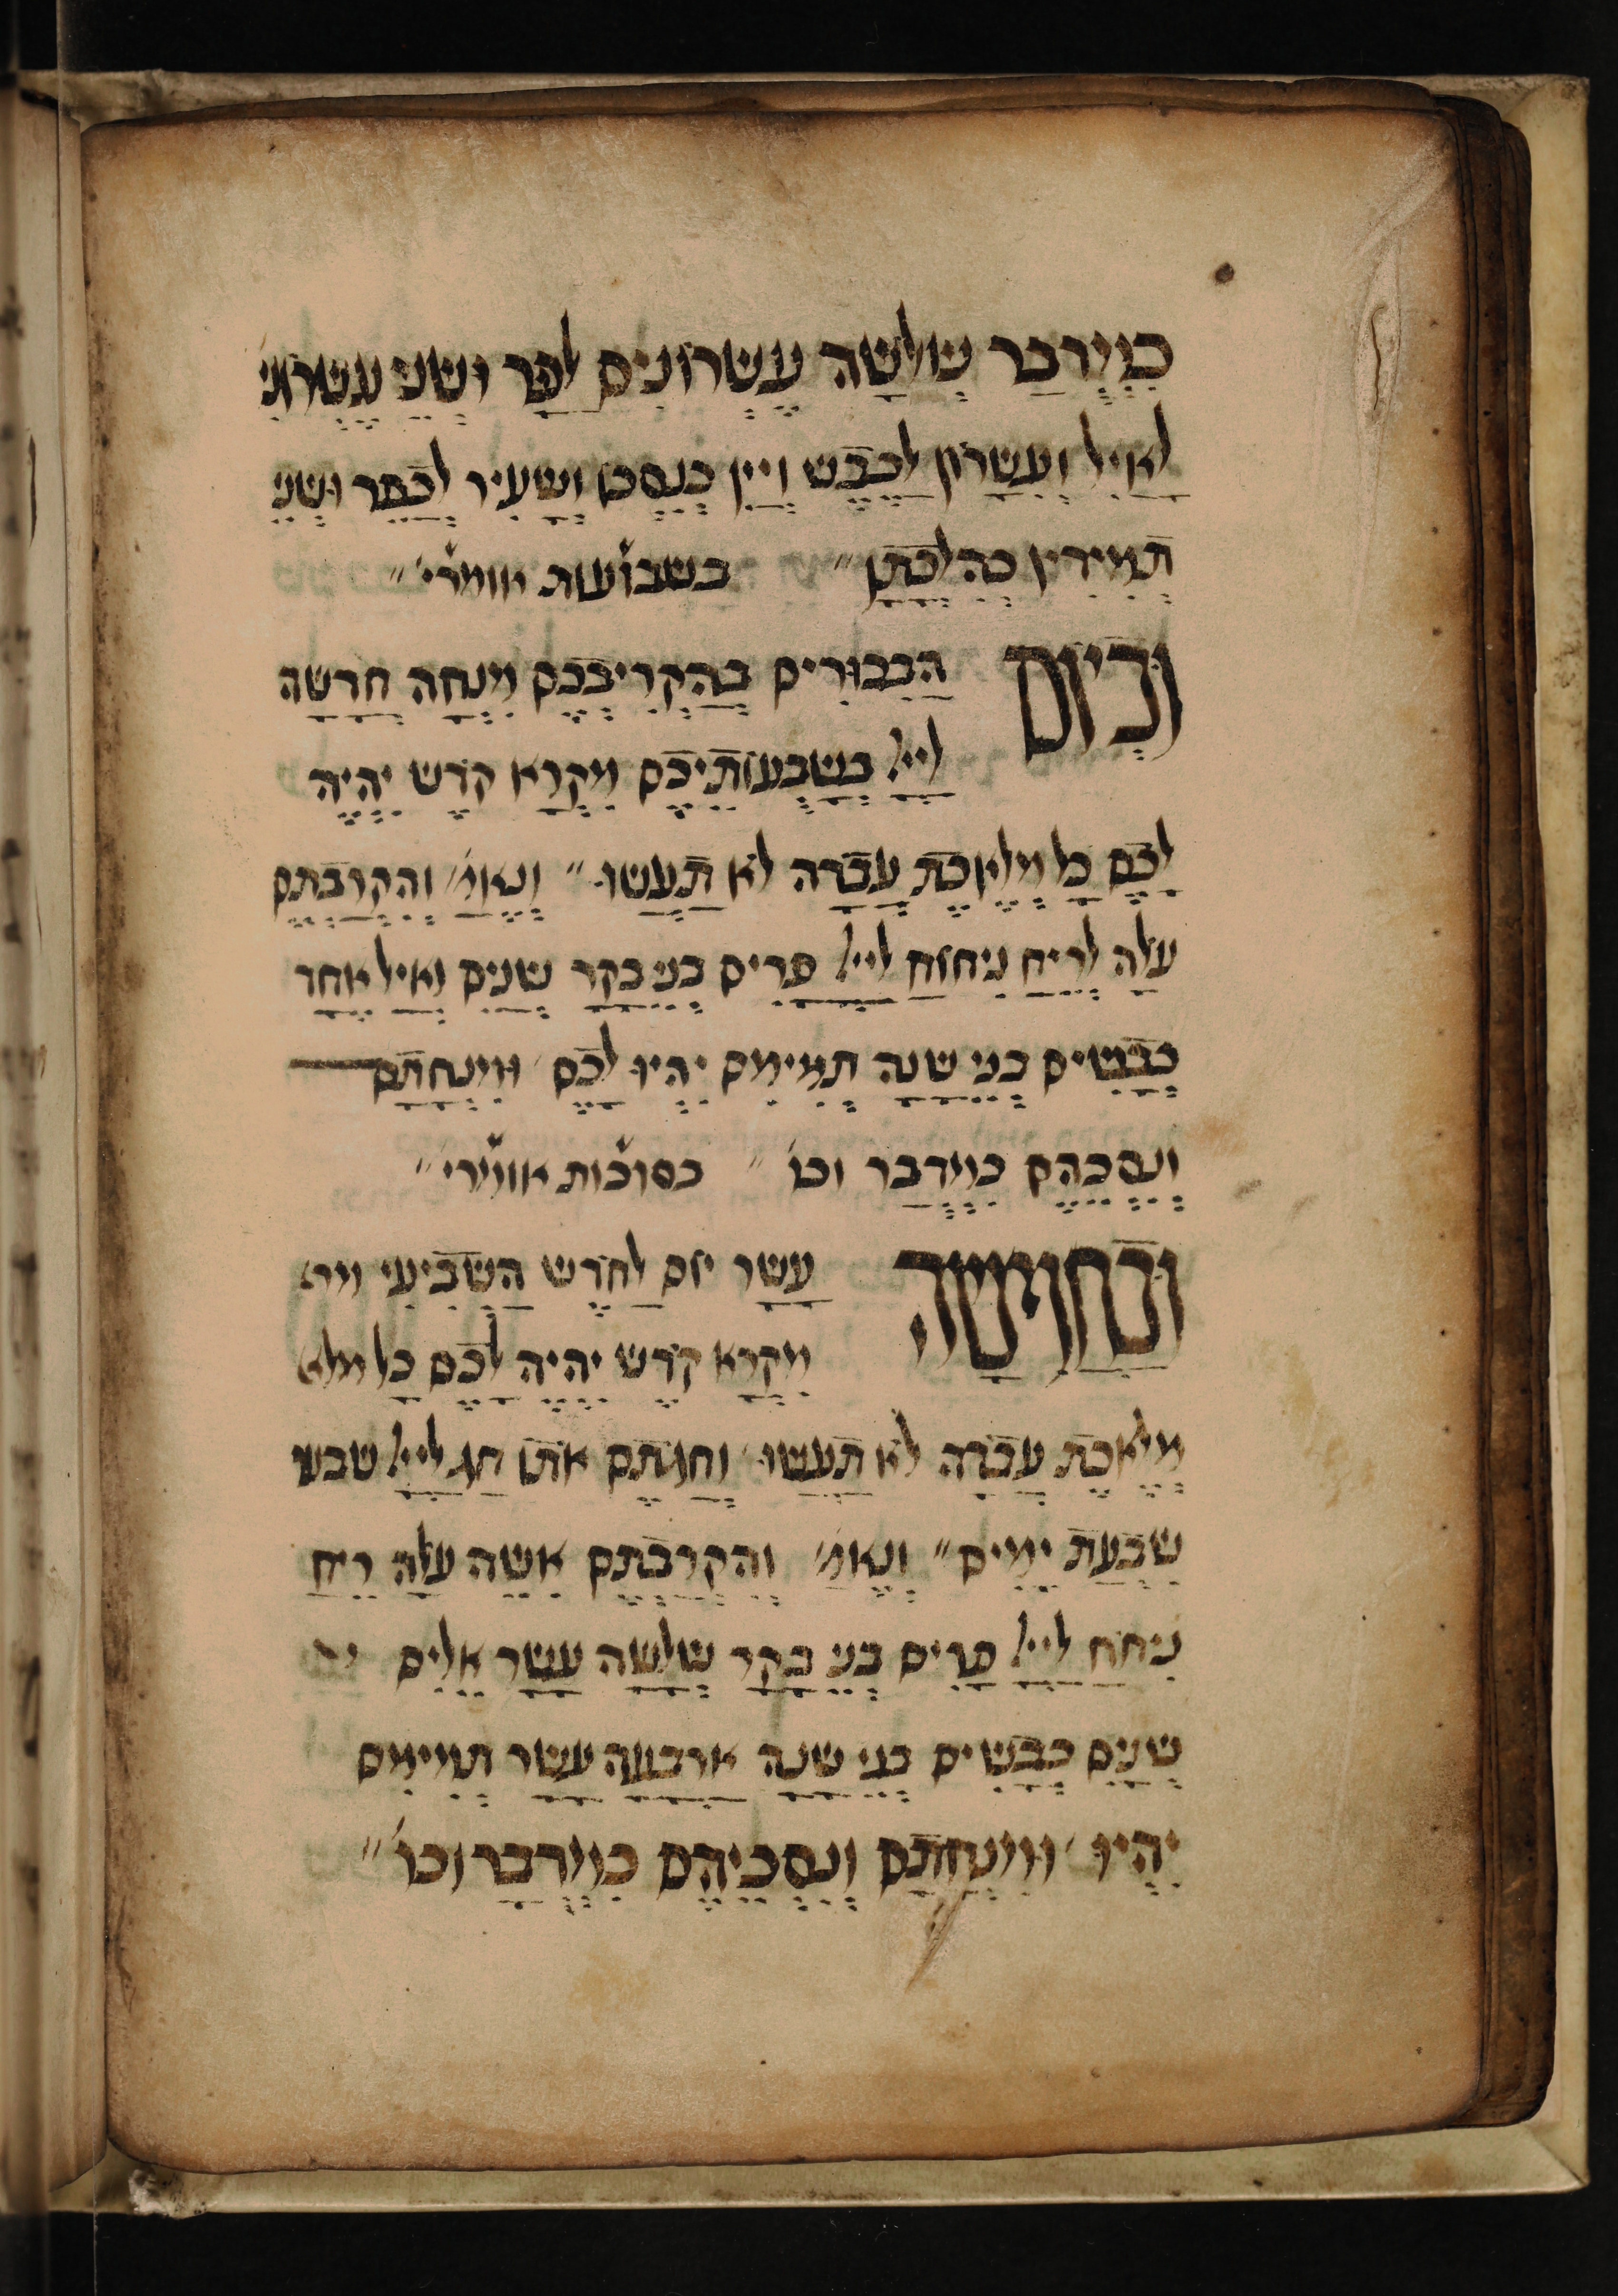 כמידבר שלשה עשרונים לפר ושני עשרוני
לאיל ועשרון לכבש ויין כנסכו ושעיר לכפר ושני
תמידין כהלכתן״ בשבועות אומרי׳״
וביום הבכורים בהקריבכם מנחה חדשה
לייל בשבעותיכם מקרא קדש יהיה
לכם כל מלאכת עבדה לא תעשו״ ונאמ׳ והקרבתם
עלה לריח ניחוח לייל פרים בני בקר שנים ואיל אחד
כבשים בני שנה תמימם יהיו לכם ומנחתם
ונסכהם כמידבר וכו״ בסוכות אומרי׳״
ובחמשה עשר יום לחדש השביעי
מקרא קדש יהיה לכם כל מלא
מלאכת עבדה לא תעשו וחגתם אתו חג לייל שבע
שבעת ימים״ ונאמ׳ והקרבתם אשה עלה ריח
ניחח לייל פרים בני בקר שלשה עשר אלים
שנים כבשים בני שנה ארבעה עשר תמימם
יהיו ומנחתם ונסכיהם כמידבר וכו׳״